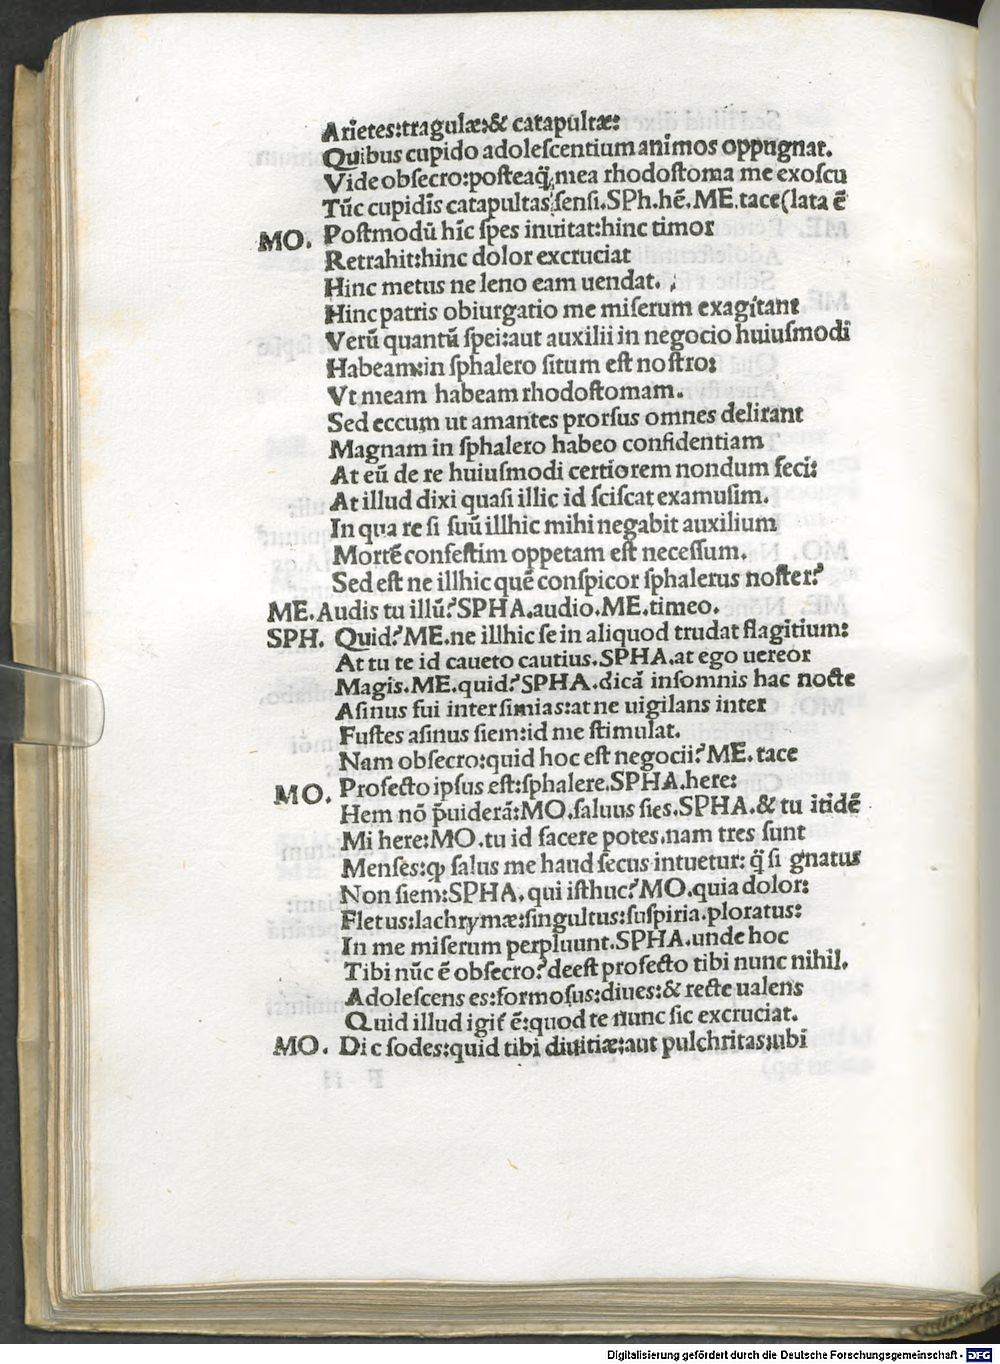 Arietes:tragulæ:& catapultæ:
Quibus cupido adoleſcentium animos oppugnat.
Vide obſecro:poſteaq̃ mea rhodoſtoma me exoſcu
Tūc cupidīs catapultas ſenſi.SPh.hē.ME.tace(lata ē
MO. Poſtmodū hīc ſpes inuitat:hinc timor
Retrahit:hinc dolor excruciat
Hinc metus ne leno eam uendat.
Hinc patris obiurgatio me miſerum exagitant
Verū quantū ſpei:aut auxilii in negocio huiuſmodi
Habeam:in ſphalero ſitum eſt noſtro:
Vt meam habeam rhodoſtomam.
Sed eccum ut amantes prorſus omnes delirant
Magnam in ſphalero habeo confidentiam
At eū de re huiuſmodi certiorem nondum feci:
At illud dixi quaſi illic id ſciſcat examuſim.
In qua re ſi ſuū illhic mihi negabit auxilium
Mortē confeſtim oppetam eſt neceſſum.
Sed eſt ne illhic quē conſpicor ſphalerus noſter?
ME. Audis tu illū?SPHA.audio.ME.timeo.
SPH. Quid?ME.ne illhic ſe in aliquod trudat flagitium:
At tu te id caueto cautius.SPHA.at ego uereor
Magis.ME.quid?SPHA.dicā inſomnis hac nocte
Aſinus fui inter ſimias:at ne uigilans inter
Fuſtes aſinus ſiem:id me ſtimulat.
Nam obſecro:quid hoc eſt negocii?ME.tace
MO. Profecto ipſus eſt:ſphalere.SPHA.here:
Hem nō p̄uiderā:MO.ſaluus ſies.SPHA.& tu itidē
Mi here:MO.tu id facere potes.nam tres ſunt
Menſes:ꝙ ſalus me haud ſecus intuetur: q̄ ſi gnatus
Non ſiem:SPHA.qui iſthuc?MO.quia dolor:
Fletus:lachrymæ:ſingultus:ſuſpiria.ploratus:
In me miſerum perpluunt.SPHA.unde hoc
Tibi nūc ē obſecro?deeſt profecto tibi nunc nihil.
Adoleſcens es:formoſus:diues:& recte ualens
Quid illud igit̄ ē:quod te nunc ſic excruciat.
MO. Dic ſodes:quid tibi diuitiæ:aut pulchritas:ubi
Digitalisierung gefördert durch die Deutsche Forschungsgemeinschaft - DFG